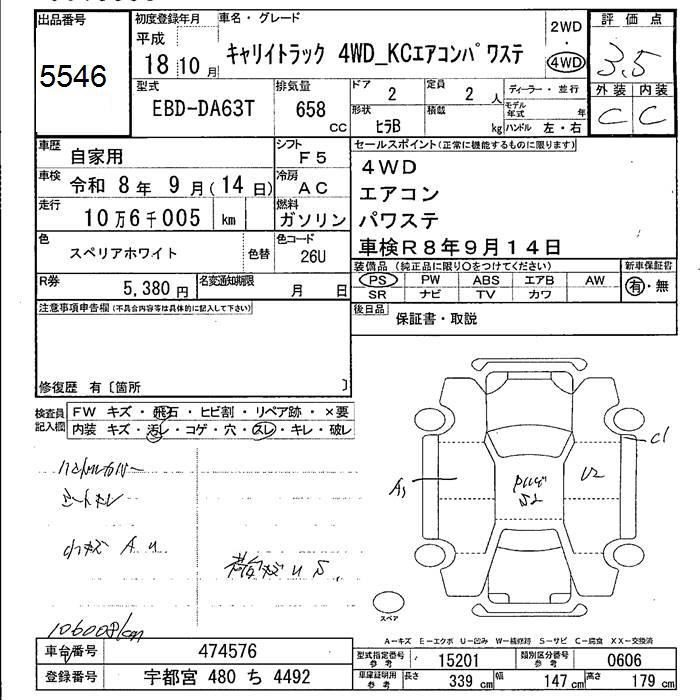 出品番号
5546
初度登録年月
平成
18 10 月
車名・グレード
キャリイトラック 4WD_KCエアコンパワステ
2WD
・
4WD
評価点
3.5
外装 内装
C C
型式
EBD-DA63T
排気量
658
CC
ドア
2
定員
2 人
形状
ヒラB
積載
kg
ディーラー・並行
モデル年式 年
ハンドル 左・右
車歴
自家用
シフト
F5
車検
令和 8 年 9 月 ( 14 日)
冷房
AC
走行
10万6千005 km
燃料
ガソリン
色
スペリアホワイト
色替
色コード
26U
R券
5,380 円
名変通知期限
月 日
セールスポイント(正常に機能するものに限ります)
4WD
エアコン
パワステ
車検R8年9月14日
装備品 (純正品に限り○をつけてください)
PS PW ABS エアB AW
SR ナビ TV カワ
新車保証書
有・無
後日品
保証書・取説
注意事項申告欄(不具合内容等は具体的に記入して下さい)
修復歴 有〔箇所 〕
検査員記入欄
FW キズ・飛石・ヒビ割・リペア跡・×要
内装 キズ・汚レ・コゲ・穴・スレ・キレ・破レ
ハンドルカバー
シートスレ
小キズ A U
荷台キズ U S
A1
U2
S2
C1
スペア
A-キズ E-エクボ U-凹み W-補修跡 S-サビ C-腐食 XX-交換済
車台番号
474576
登録番号
宇都宮 480 ち 4492
型式指定番号
参考
15201
類別区分番号
参考
0606
車庫証明用
参考
長さ 339 cm 幅 147 cm 高さ 179 cm